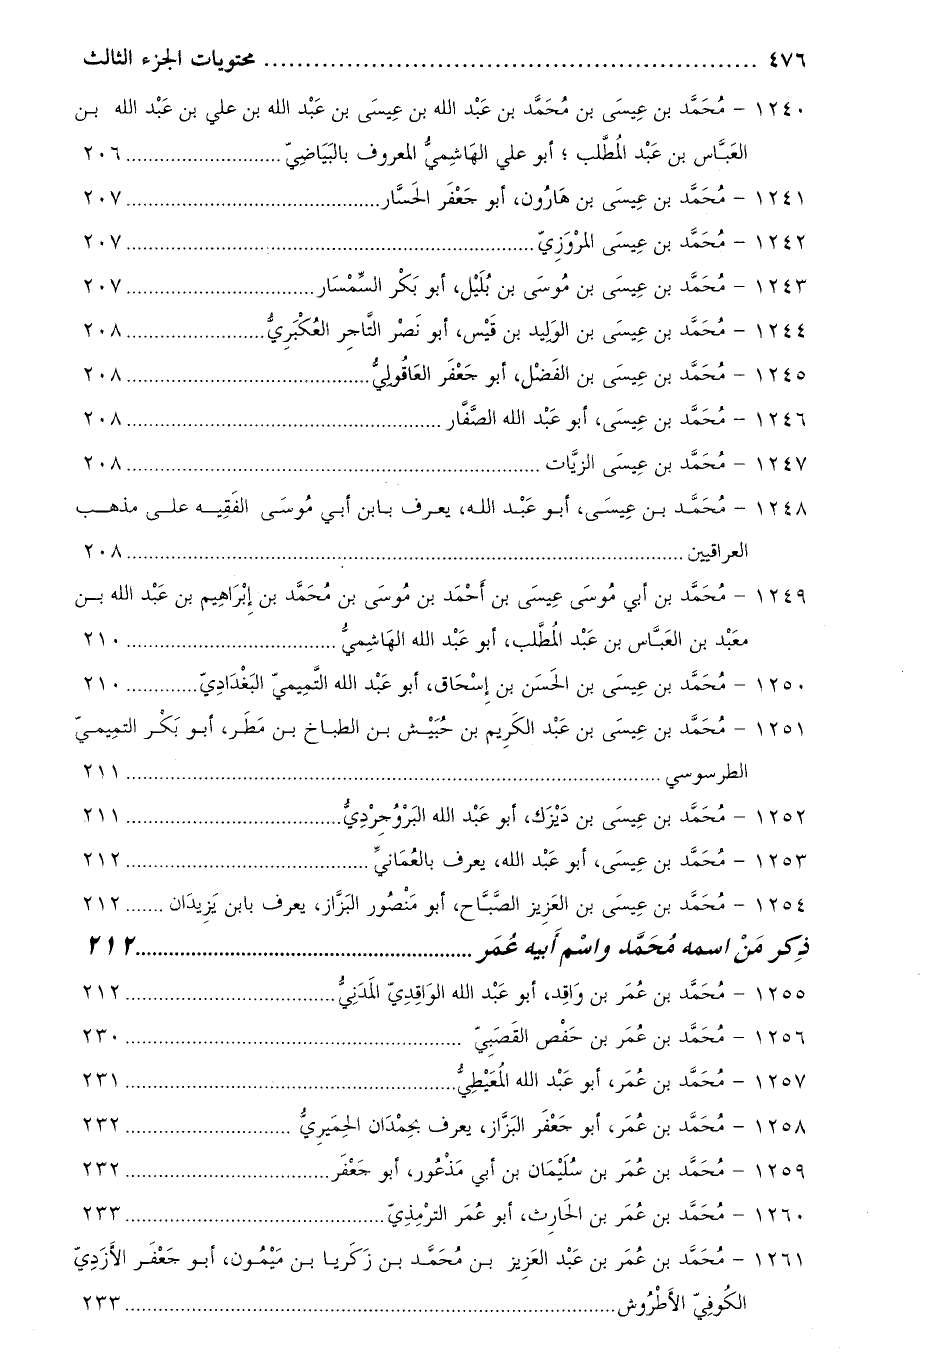 ٤٧٦ ........ محتويات الجزء الثالث
١٢٤٠ - مُحَمَّد بن عِيسَى بن مُحَمَّد بن عَبْد الله بن عِيسَى بن عَبْد الله بن علي بن عَبْد الله بـن
العَبَّاس بن عَبْد المُطَّلب ؛ أبو علي الهَاشِميُّ المعروف بالبَيَاضِيّ ........ ٢٠٦
١٢٤١ - مُحَمَّد بن عِيسَى بن هَارُون، أبو جَعْفَر الحَسَّار ........ ٢٠٧
١٢٤٢ - مُحَمَّد بن عِيسَى المرْوَزِيّ ........ ٢٠٧
١٢٤٣ - مُحَمَّد بن عِيسَى بن مُوسَى بن بُلَيْل، أبو بَكْر السِّمْسَار ........ ٢٠٧
١٢٤٤ - مُحَمَّد بن عِيسَى بن الوَلِيد بن قَيْس، أبو نَصْر التَّاجِر العُكْبَرِيُّ ........ ٢٠٨
١٢٤٥ - مُحَمَّد بن عِيسَى بن الفَضْل، أبو جَعْفَر العَاقُولِيُّ ........ ٢٠٨
١٢٤٦ - مُحَمَّد بن عِيسَى، أبو عَبْد الله الصَّفَّار ........ ٢٠٨
١٢٤٧ - مُحَمَّد بن عِيسَى الزيَّات ........ ٢٠٨
١٢٤٨ - مُحَمَّـد بـن عِيسَـى، أبـو عَبْـد اللـه، يعـرف بـابن أبـي مُوسَـى الفَقِيـه علـى مذهـب
العراقيين ........ ٢٠٨
١٢٤٩ - مُحَمَّد بن أبي مُوسَى عِيسَى بن أَحْمَد بن مُوسَى بن مُحَمَّد بن إِبْرَاهِيم بن عَبْد الله بـن
معَبْد بن العَبَّاس بن عَبْد المُطَّلب، أبو عَبْد الله الهَاشِميُّ ........ ٢١٠
١٢٥٠ - مُحَمَّد بن عِيسَى بن الحَسَن بن إسْحَاق، أبو عَبْد الله التَّمِيميّ البَغْدَادِيّ ........ ٢١٠
١٢٥١ - مُحَمَّد بن عِيسَى بن عَبْد الكَرِيم بن حُبَيْـش بـن الطباخ بـن مَطَـر، أبـو بَكْـر التمِيمـيّ
الطرسوسي ........ ٢١١
١٢٥٢ - مُحَمَّد بن عِيسَى بن دَيْزَك، أبو عَبْد الله البَرْوُجِرْدِيُّ ........ ٢١١
١٢٥٣ - مُحَمَّد بن عِيسَى، أبو عَبْد الله، يعرف بالعُمَانيِّ ........ ٢١٢
١٢٥٤ - مُحَمَّد بن عِيسَى بن العَزِيز الصَّبَّاح، أبو مَنْصُور البَزَّاز، يعرف بابن يَزِيدَان ....... ٢١٢
ذِكر مَنْ اسمه مُحَمَّد واسْم أَبيه عُمَر ........ ٢١٢
١٢٥٥ - مُحَمَّد بن عُمَر بن وَاقِد، أبو عَبْد الله الوَاقِدِيّ المَدَنِيُّ ........ ٢١٢
١٢٥٦ - مُحَمَّد بن عُمَر بن حَفْص القَصَبِيّ ........ ٢٣٠
١٢٥٧ - مُحَمَّد بن عُمَر، أبو عَبْد الله المُعَيْطِيُّ ........ ٢٣١
١٢٥٨ - مُحَمَّد بن عُمَر، أبو جَعْفَر البَزَّاز، يعرف بحِمْدَان الحِمَيرِيُّ ........ ٢٣٢
١٢٥٩ - مُحَمَّد بن عُمَر بن سُلَيْمَان بن أبي مَذْعُور، أبو جَعْفَر ........ ٢٣٢
١٢٦٠ - مُحَمَّد بن عُمَر بن الحَارِث، أبو عُمَر الترْمِذيّ ........ ٢٣٣
١٢٦١ - مُحَمَّد بن عُمَر بن عَبْد العَزِيز بـن مُحَمَّـد بـن زَكَرِيا بـن مَيْمُـون، أبـو جَعْفَـر الأَزَدِيّ
الكُوفِيّ الأَطْرُوش ........ ٢٣٣